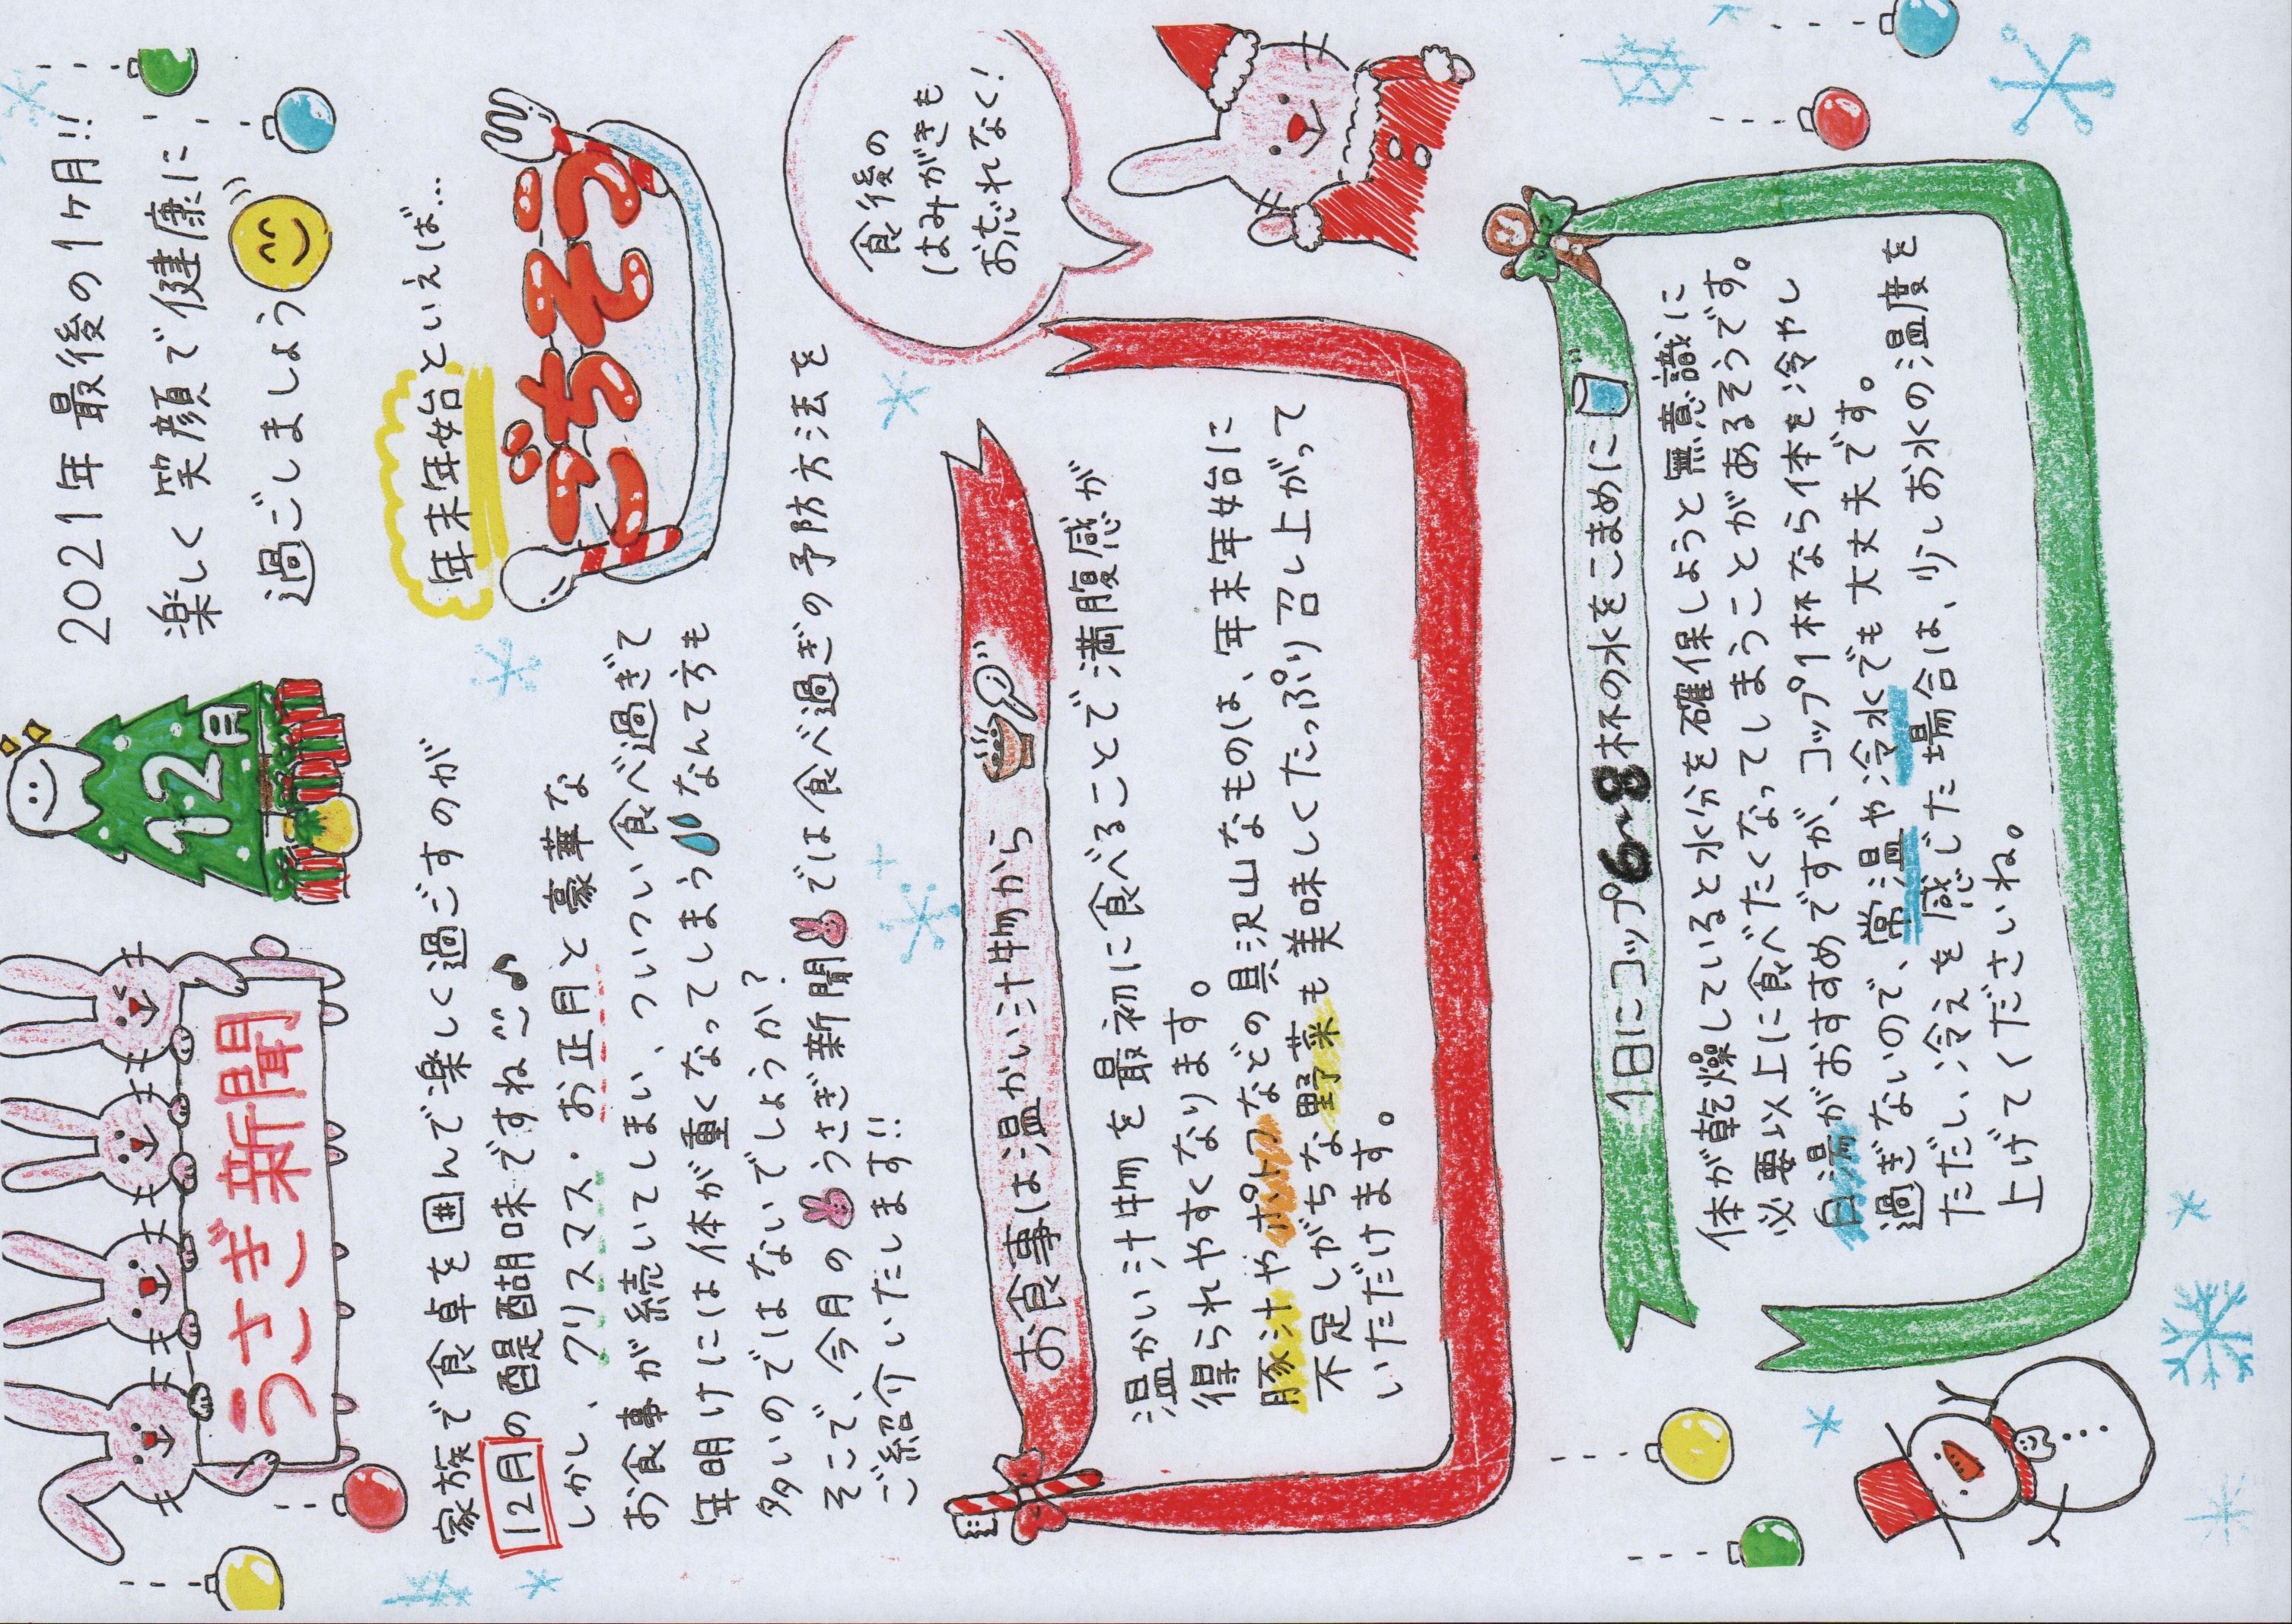 うさぎ新聞
12月
2021年最後の1ヶ月!!
楽しく笑顔で健康に
過ごしましょう
年末年始といえば…
ごちそう
家族で食卓を囲んで楽しく過ごすのが
12月の醍醐味ですね♪
しかし、クリスマス・お正月と豪華な
お食事が続いてしまい、ついつい食べ過ぎて
年明けには体が重くなってしまうなんて方も
多いのではないでしょうか?
そこで、今月のうさぎ新聞では食べ過ぎの予防方法を
ご紹介いたします!!
食後の
はみがきも
お忘れなく!
お食事は温かい汁物から
温かい汁物を最初に食べることで満腹感が
得られやすくなります。
豚汁やポトフなどの具沢山なものは、年末年始に
不足しがちな野菜も美味しくたっぷり召し上がって
いただけます。
1日にコップ6~8杯の水をこまめに
体が乾燥していると水分を確保しようと無意識に
必要以上に食べたくなってしまうことがあるそうです。
白湯がおすすめですが、コップ1杯なら体を冷やし
過ぎないので、常温や冷水でも大丈夫です。
ただし、冷えを感じた場合は、少しお水の温度を
上げてくださいね。